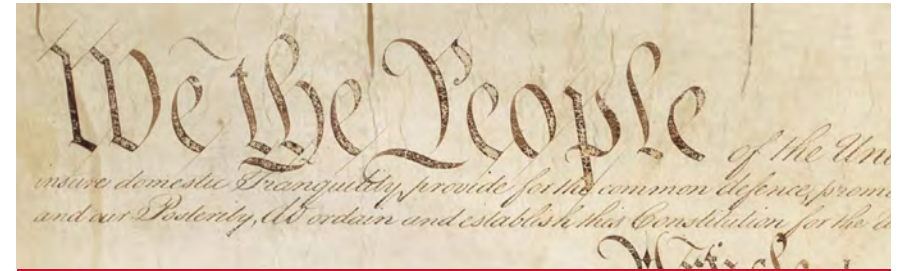 We the People of the Un
insure domestic Tranquility, provide for the common defence, promo
and our Posterity, do ordain and establish this Constitution for the